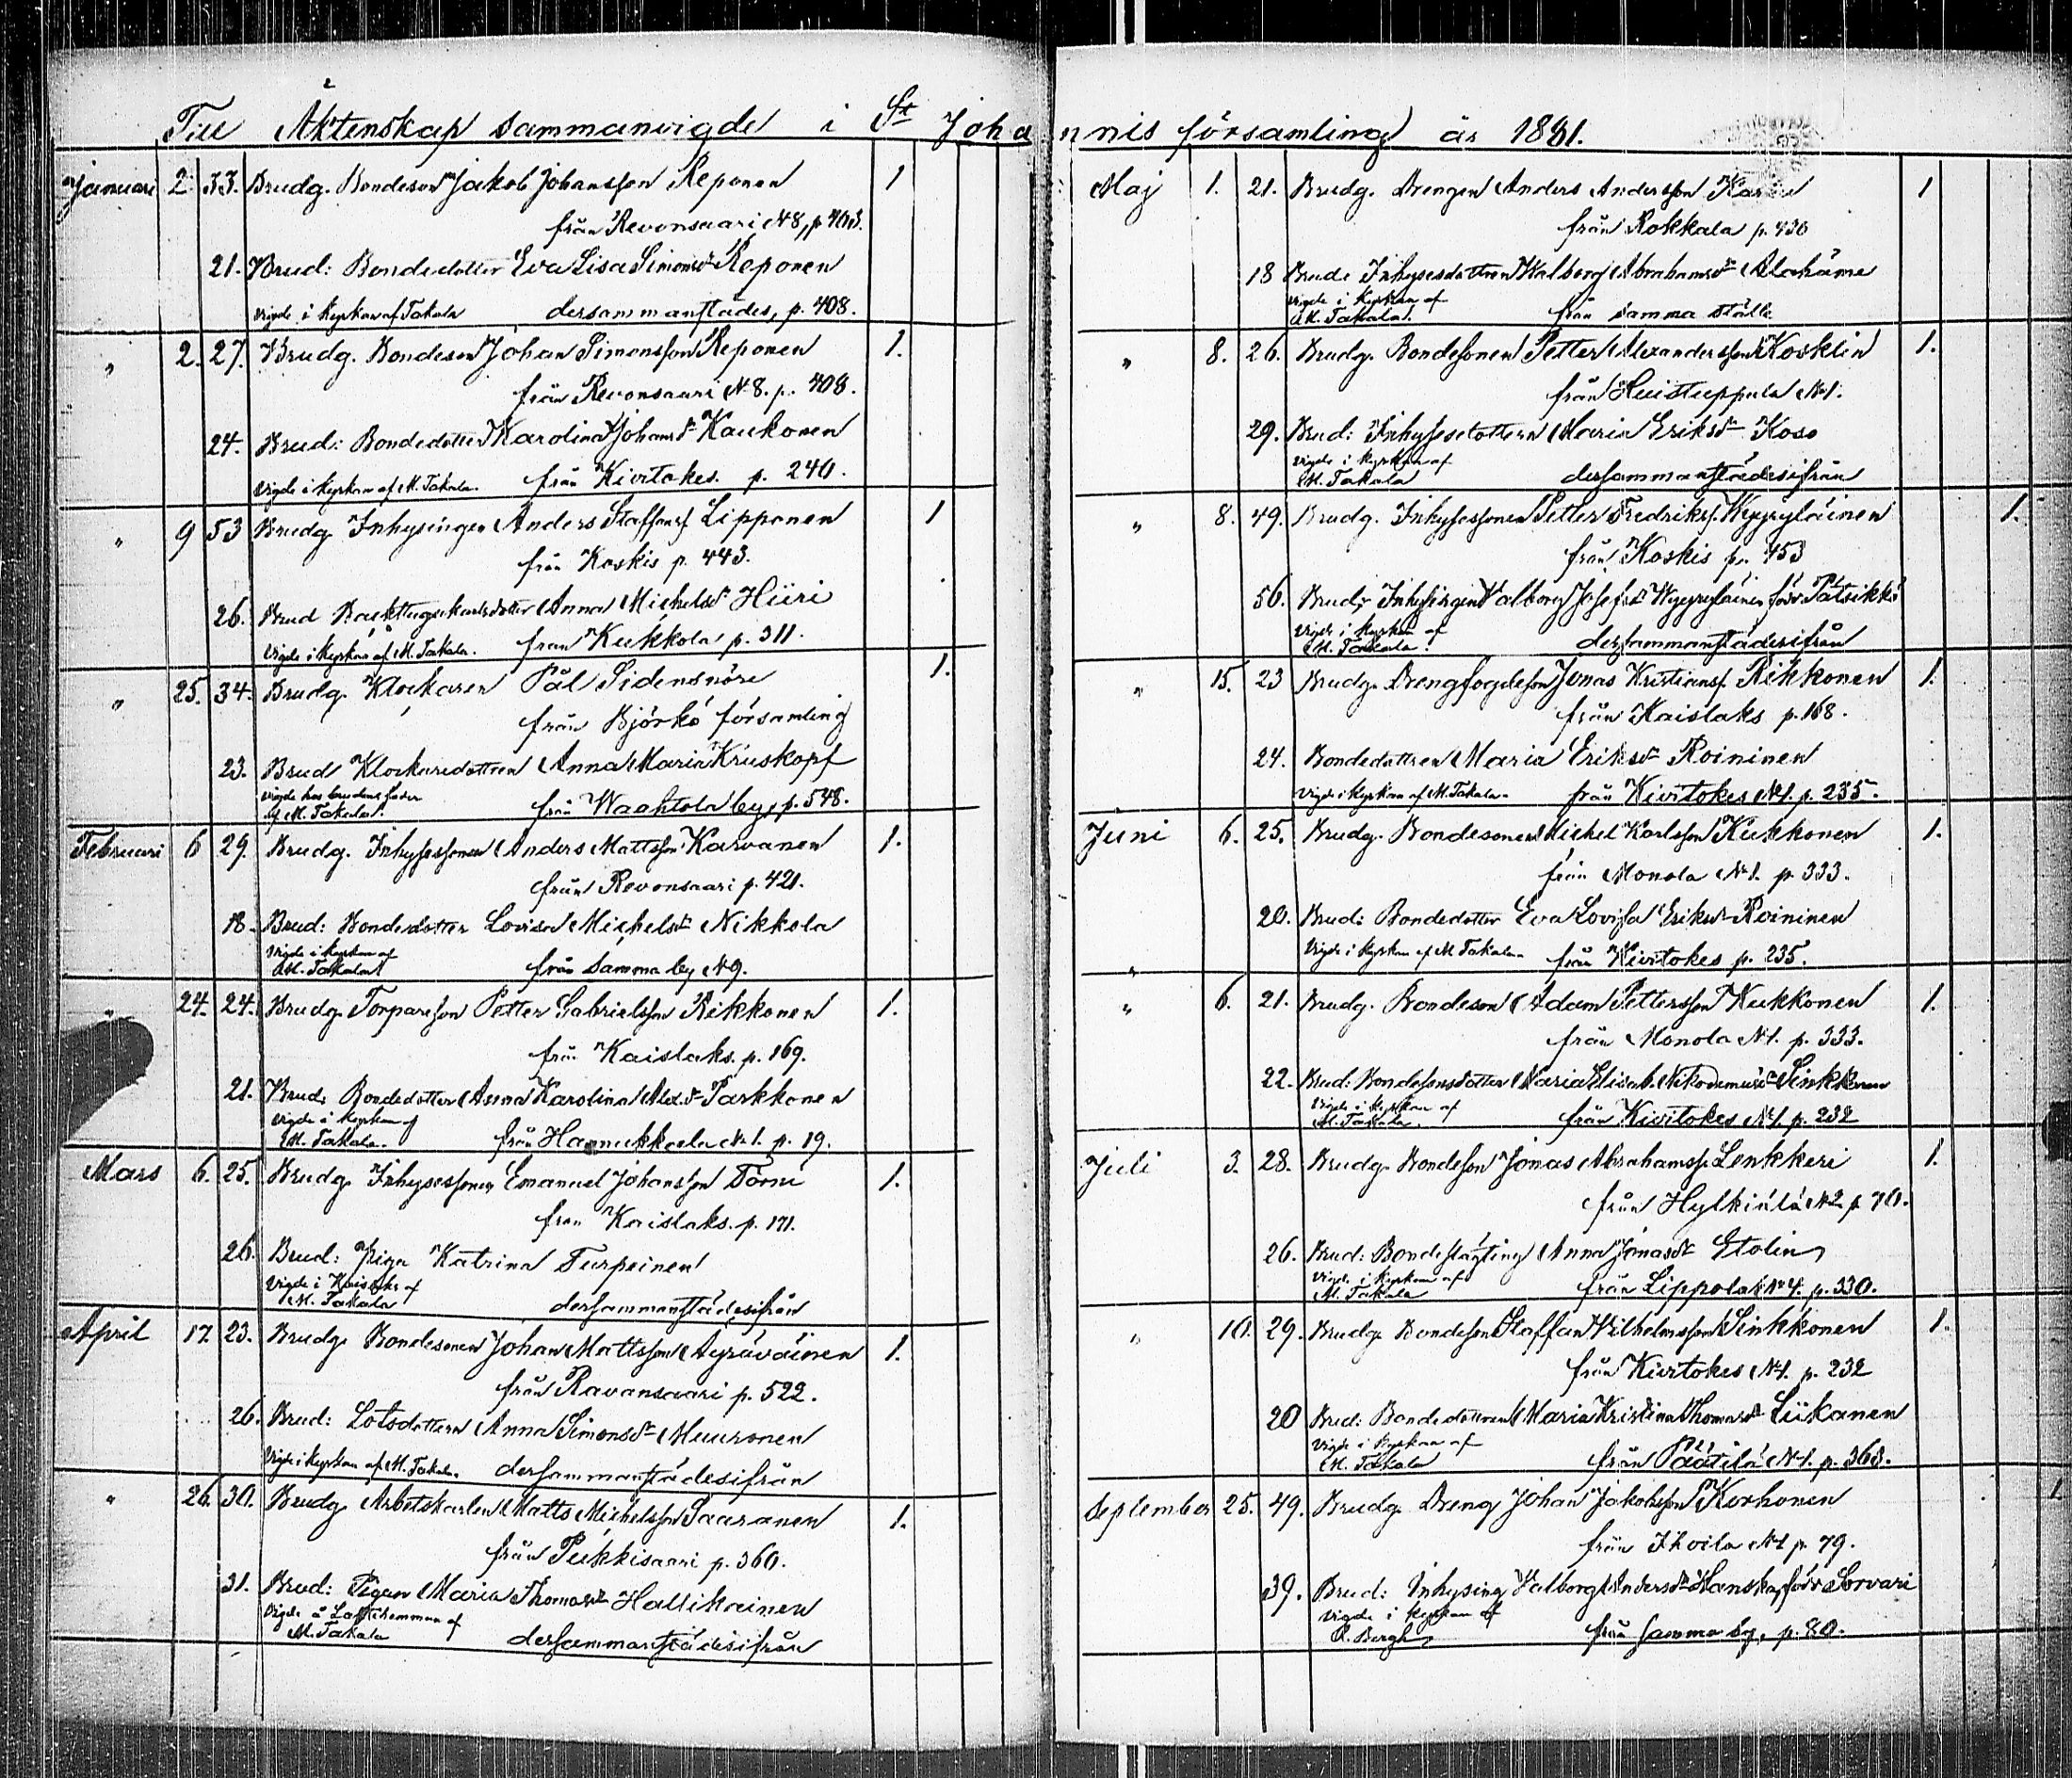 Till Äktenskap sammanvigde i St Johannis församling år 1881.
Januari 2. 33. Brudg. Bondeson Jakob Johansson Reponen 1
från Revonsaari N 8, p. 403.
21. Brud: Bondedotter Eva Lisa Simonsdr Reponen
Vigde i kyrkan af Takala dersammanstädes, p. 408.
" 2. 27. Brudg. Bondeson Johan Simonsson Reponen 1.
från Revonsaari N 8. p. 408.
24. Brud: Bondedotter Karolina Johansdr Kaukonen
Vigde i kyrkan af M. Takala. från Kivitokes. p. 240.
" 9 53 Brudg Inhysingen Anders Staffansf Lipponen 1
från Koskis p. 443.
26. Brud Anna Michelsdr Hiiri
Vigde i kyrkan af M. Takala. från Kukkola p. 311.
" 25. 34. Brudg. Klockaren Pål Sidensnöre 1.
från Björkö församling
23. Brud Klockaredottren Anna Maria Kruskopf
Vigde hos brudens fader
af M. Takala. från Waahtola by, p. 548.
Februari 6 29. Brudg. Inhysessonen Anders Mattsson Karvanen 1.
från Revonsaari p. 421.
18. Brud: Bondedotter Lovisa Michelsdr Nikkola
Vigde i kyrkan af
M. Takala från samma by N 9.
" 24. 24. Brudg. Torpareson Petter Gabrielsson Rikkonen 1.
från Kaislaks. p. 169.
21. Brud: Bondedotter Anna Karolina Alex.dr Parkkonen
Vigde i kyrkan af
M. Takala. från Hannukkala N 1. p. 19.
Mars 6. 25. Brudg. Inhysessonen Emanuel Johansson Torni 1.
från Kaislaks. p. 171.
26. Brud: Piga Katrina Turpeinen
Vigde i Kaislaks af
M. Takala dersammanstädesifrån
April 17 23. Brudg. Bondesonen Johan Mattsson Äyräväinen 1.
från Ravansaari p. 522.
26. Brud: Lotsdottern Anna Simonsdr Muuronen
Vigde i kyrkan af M. Takala. dersammanstädesifrån
" 26. 30. Brudg. Arbetskarlen Matts Michelsson Saaranen 1.
från Pukkisaari p. 360.
31. Brud: Pigan Maria Thomasdr Hallikainen
Vigde å af
M. Takala dersammanstädesifrån
Maj 1. 21. Brudg. Drengen Anders Andersson 1
från Rokkala p. 430
18 Brud: Inhysesdottren Walborg Abrahamsdr Alahäme
Vigde i kyrkan af
M. Takala. från samma ställe
" 8. 26. Brudg. Bondesonen Petter Alexandersson Kosklin 1.
från Huistuppula N 1.
29. Brud: Inhysesdottern Maria Eriksdr Koso
Vigde i kyrkan af
M. Takala dersammanstädesifrån
" 8. 49. Brudg. Inhysessonen Petter Fredriksf. Kyyryläinen 1.
från Koskis p. 453
56. Brud: Inhysingen Walborg Josefsdr Kyyryläinen född Pätsikkö
Vigde i kyrkan af
M. Takala. dersammanstädesifrån
" 15. 23 Brudg. Drengfogdeson Jonas Kristiansf. Rikkonen 1.
från Kaislaks p. 168.
24. Bondedottren Maria Eriksdr Roininen
Vigde i kyrkan af M. Takala. från Kivitokes N 1. p. 235.
Juni 6. 25. Brudg. Bondesonen Michel Karlsson Kukkonen 1.
från Monola N 1. p. 333.
20. Brud: Bondedotter Eva Lovisa Eriksdr Roininen
Vigde i kyrkan af M Takala. från Kivitokes p. 235.
" 6. 21. Brudg. Bondeson Adam Pettersson Kukkonen 1.
från Monola N 1. p. 333.
22. Brud: Bondesonsdotter Maria Elisab. Nikodemusdr Sinkkonen
Vigde i kyrkan af
M. Takala. från Kivitokes N 1. p. 232
Juli 3. 28. Brudg. Bondeson Jonas Abrahamsf. Lenkkeri 1.
från Hylkiälä N 2 p 70.
26. Brud: Anna Jonasdr Etolin
Vigde i kyrkan af
M. Takala från Lippola N 4. p. 330.
" 10. 29. Brudg. Bondeson Staffan Wilhelmsson Sinkkonen 1.
från Kivitokes N 1. p. 232
20 Brud: Bondedottren Maria Kristina Thomasdr Liikanen
Vigde i kyrkan af
M. Takala från Päätilä N 1. p. 363.
September 25. 49. Brudg. Dreng Johan Jakobsson Korhonen 1.
från Ihoila N 1 p. 79.
39. Brud: Inhysing Walborg Andersdr Hanska född Sorvari
Vigde i kyrkan af
R. Bergh från samma by, p. 80.